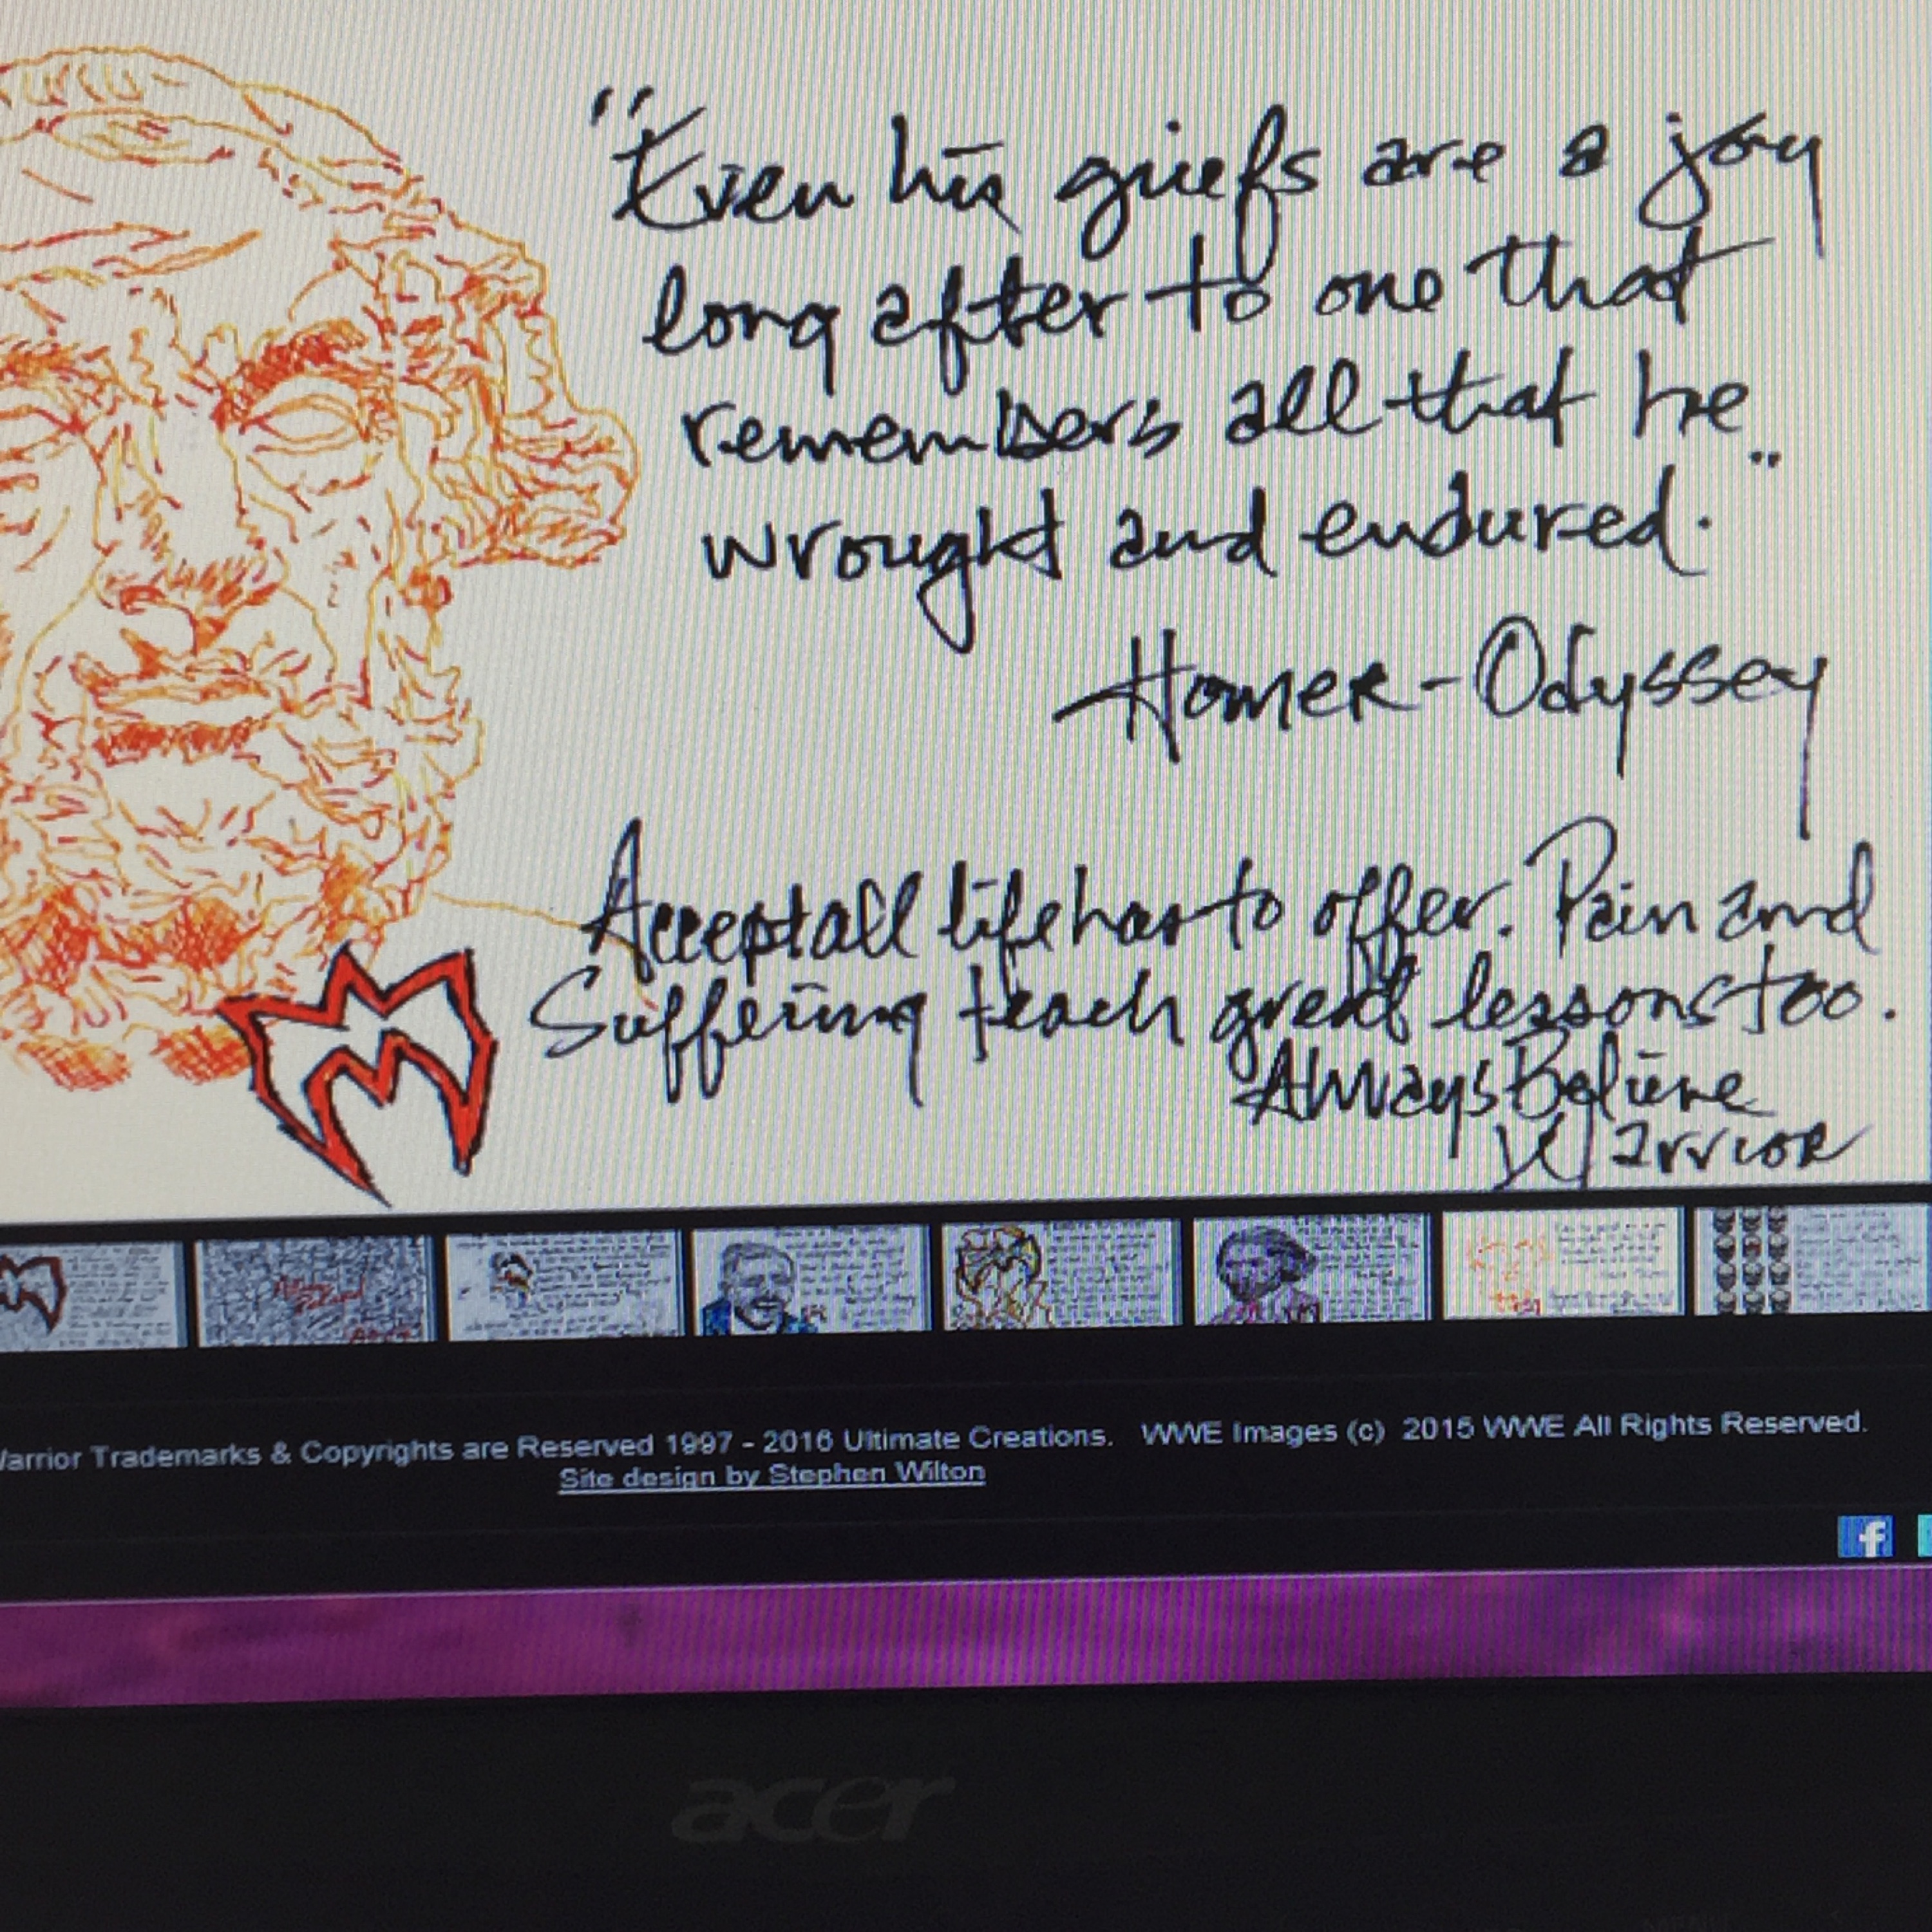 "Even his griefs are a joy
long after to one that
remembers all that he
wrought and endured."
Homer-Odyssey
Accept all life has to offer. Pain and
Suffering teach great lessons too.
Always Believe
Warrior
Warrior Trademarks & Copyrights are Reserved 1997 - 2016 Ultimate Creations. WWE Images (c) 2015 WWE All Rights Reserved.
Site design by Stephen Wilton
f
acer